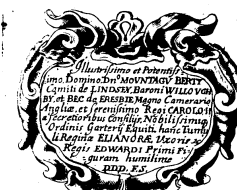 Illustrissimo et Potentiss
imo, Domino, Dn̄o MOUNTAGU BERTY
Comiti de LINDSEY, Baroni WILLOUGH
BY, et BEC de ERESBIE Magno Camerario
Angliæ, et serenissimo Regi CAROLO II
a secretioribus Consilijs, Nobilissimiq̃
Ordinis Garterij Equiti, hanc Tumu
li Reginæ ELIANORÆ, Uxoris
Regis EDWARDI Primi Fi
guram humilime
DDD. F.S.